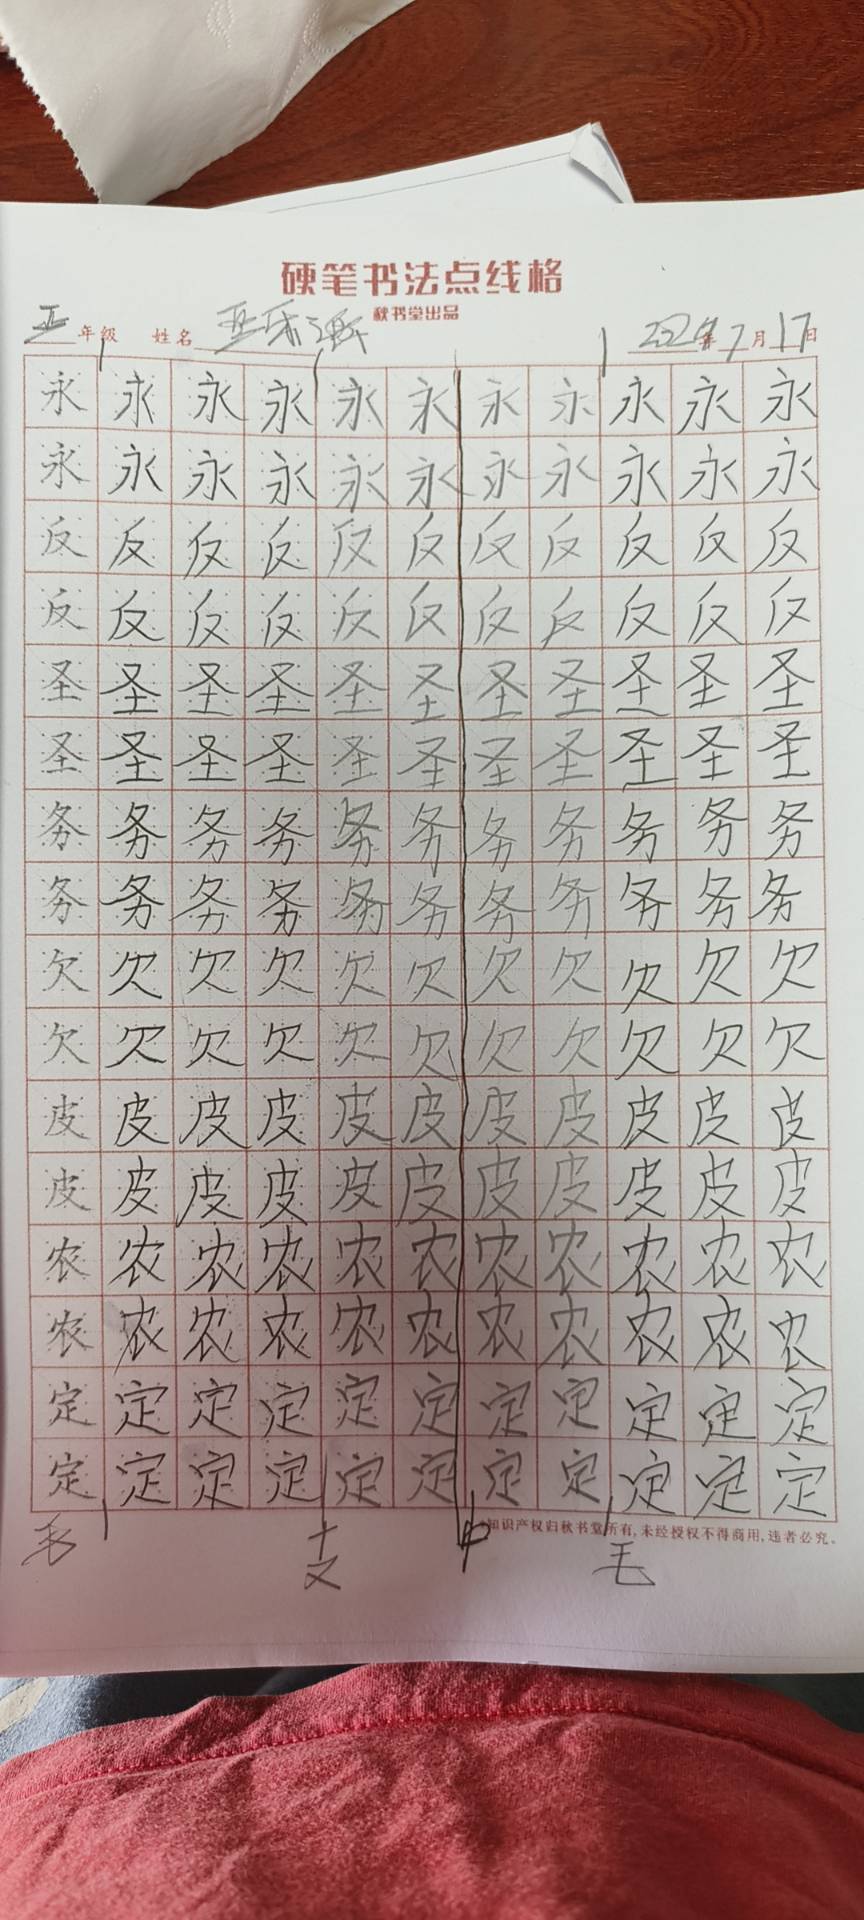 硬笔书法点线格
秋书堂出品
五年级 姓名 2024年7月17日
永永永永永永永永永永永
永永永永永永永永永永永
反反反反反反反反反反反
反反反反反反反反反反反
圣圣圣圣圣圣圣圣圣圣圣
圣圣圣圣圣圣圣圣圣圣圣
务务务务务务务务务务务
务务务务务务务务务务务
欠欠欠欠欠欠欠欠欠欠欠
欠欠欠欠欠欠欠欠欠欠欠
皮皮皮皮皮皮皮皮皮皮皮
皮皮皮皮皮皮皮皮皮皮皮
农农农农农农农农农农农
农农农农农农农农农农农
定定定定定定定定定定定
定定定定定定定定定定定
知识产权归秋书堂所有,未经授权不得商用,违者必究。
毛 支 中 毛